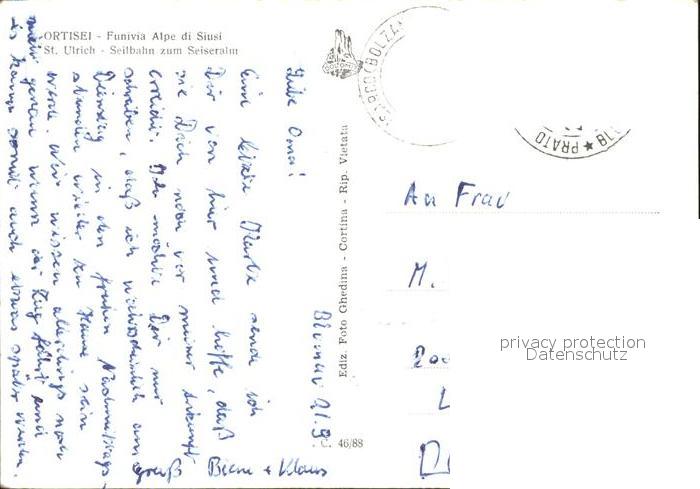 ORTISEI - Funivia Alpe di Siusi
St. Ulrich - Seilbahn zum Seiseralm
Blumau 21.9.
Liebe Oma!
Eine letzte Karte sende ich
Dir von hier und hoffe, daß
sie Dich noch vor meiner Ankunft
erreicht. Ich möchte Dir nur
schreiben, daß ich wahrscheinlich am
Dienstag in den frühen Nachmittags-
stunden wieder zu Hause sein
werde. Wir wissen allerdings noch
nicht genau wann der Zug fährt und
es kann somit auch etwas später werden.
Gruß Biene + Klaus
Ediz. Foto Ghedina - Cortina - Rip. Vietata
C. 46/88
CARDO (BOLZA
PRATO
An Frau
M.
privacy protection
Datenschutz